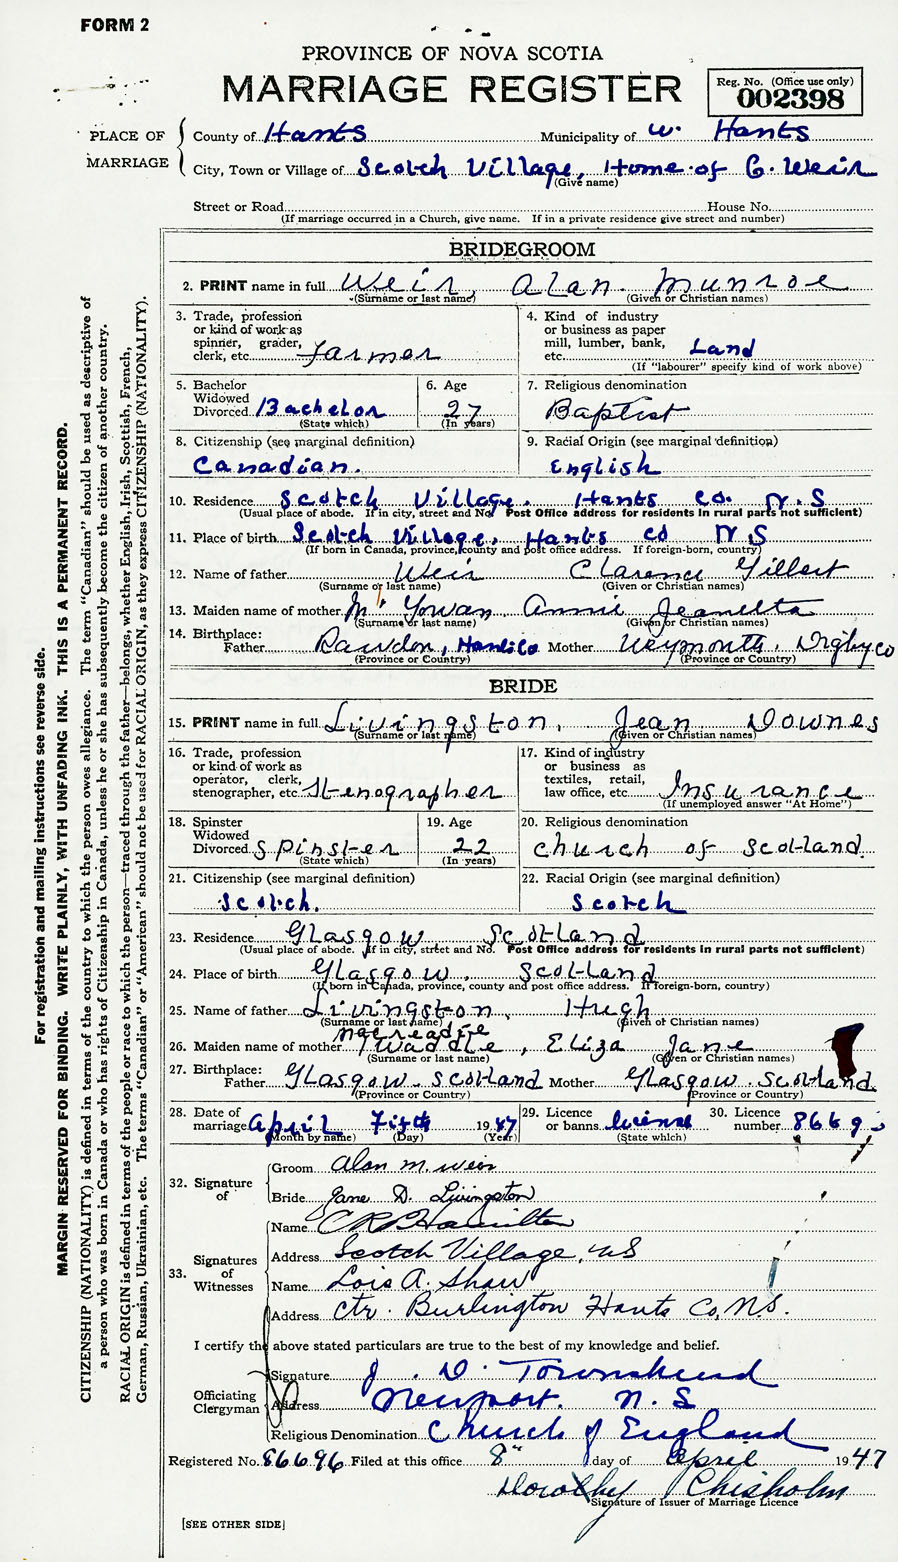 FORM 2
PROVINCE OF NOVA SCOTIA
MARRIAGE REGISTER
Reg. No. (Office use only)
002398
PLACE OF MARRIAGE
County of Hants Municipality of W. Hants
City, Town or Village of Scotch Village, Home of G. Weir
(Give name)
Street or Road House No.
(If marriage occurred in a Church, give name. If in a private residence give street and number)
BRIDEGROOM
2. PRINT name in full Weir, Alan Munroe
(Surname or last name) (Given or Christian names)
3. Trade, profession or kind of work as spinner, grader, clerk, etc. farmer
4. Kind of industry or business as paper mill, lumber, bank, etc. Land
(If "labourer" specify kind of work above)
5. Bachelor Widowed Divorced Bachelor
(State which)
6. Age 27
(In years)
7. Religious denomination
Baptist
8. Citizenship (see marginal definition)
Canadian.
9. Racial Origin (see marginal definition)
English
10. Residence Scotch Village. Hants Co. N.S
(Usual place of abode. If in city, street and No. Post Office address for residents in rural parts not sufficient)
11. Place of birth Scotch Village, Hants Co N S
(If born in Canada, province, county and post office address. If foreign-born, country)
12. Name of father Weir Clarence Gilbert
(Surname or last name) (Given or Christian names)
13. Maiden name of mother Annie
(Surname or last name) (Given or Christian names)
14. Birthplace:
Father Rawdon, Hants Co Mother Weymouth, Digby co
(Province or Country) (Province or Country)
BRIDE
15. PRINT name in full Livingston, Jean Downes
(Surname or last name) (Given or Christian names)
16. Trade, profession or kind of work as operator, clerk, stenographer, etc. Stenographer
17. Kind of industry or business as textiles, retail, law office, etc. Insurance
(If unemployed answer "At Home")
18. Spinster Widowed Divorced Spinster
(State which)
19. Age 22
(In years)
20. Religious denomination
Church of Scotland.
21. Citizenship (see marginal definition)
Scotch.
22. Racial Origin (see marginal definition)
Scotch
23. Residence Glasgow Scotland
(Usual place of abode. If in city, street and No. Post Office address for residents in rural parts not sufficient)
24. Place of birth Glasgow. Scotland
(If born in Canada, province, county and post office address. If foreign-born, country)
25. Name of father Livingston, Hugh
(Surname or last name) (Given or Christian names)
26. Maiden name of mother , Eliza Jane
(Surname or last name) (Given or Christian names)
27. Birthplace:
Father Glasgow. Scotland Mother Glasgow. Scotland.
(Province or Country) (Province or Country)
28. Date of marriage April Fifth 1947
(Month by name) (Day) (Year)
29. Licence or banns License
(State which)
30. Licence number 8669
32. Signature of
Groom Alan M. Weir
Bride Jane D. Livingston
33. Signatures of Witnesses
Name Hamilton
Address Scotch Village, NS
Name Lois A. Shaw
Address Ctr. Burlington Hants Co, N.S.
I certify the above stated particulars are true to the best of my knowledge and belief.
Officiating Clergyman
Signature J. D. Townshend
Address Newport. N. S
Religious Denomination Church of England
Registered No. 86696 Filed at this office 8" day of April 1947
Dorothy Chisholm
Signature of Issuer of Marriage Licence
[SEE OTHER SIDE]
For registration and mailing instructions see reverse side.
MARGIN RESERVED FOR BINDING. WRITE PLAINLY, WITH UNFADING INK. THIS IS A PERMANENT RECORD.
CITIZENSHIP (NATIONALITY) is defined in terms of the country to which the person owes allegiance. The term "Canadian" should be used as descriptive of
a person who was born in Canada or who has rights of Citizenship in Canada, unless he or she has subsequently become the citizen of another country.
RACIAL ORIGIN is defined in terms of the people or race to which the person—traced through the father—belongs, whether English, Irish, Scottish, French,
German, Russian, Ukrainian, etc. The terms "Canadian" or "American" should not be used for RACIAL ORIGIN, as they express CITIZENSHIP (NATIONALITY).